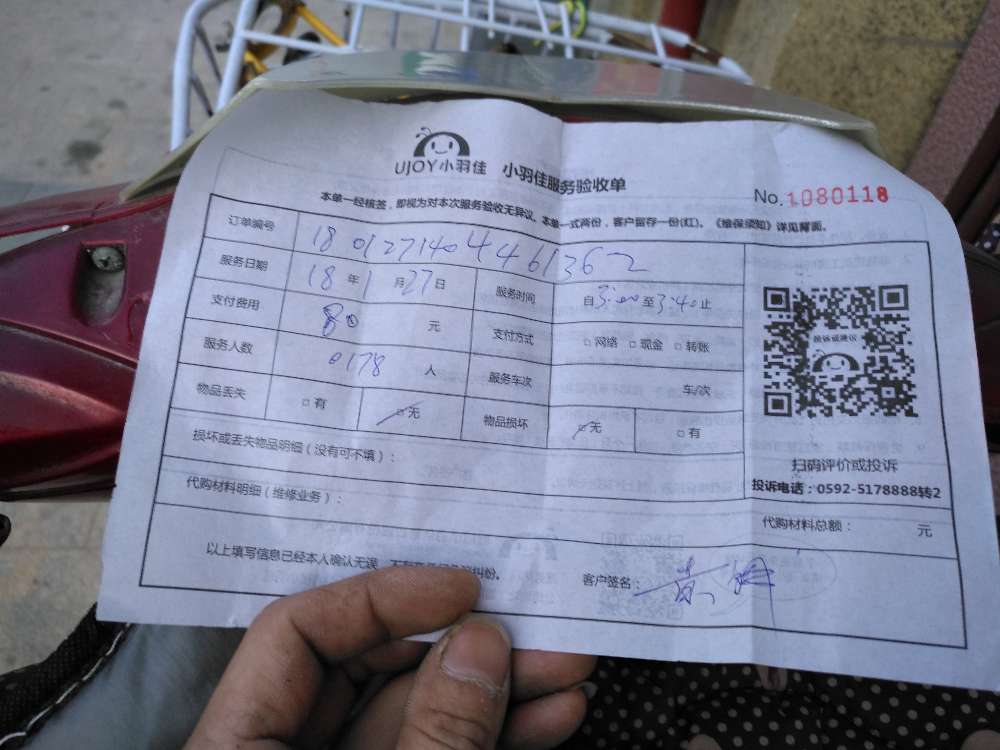 UJOY小羽佳 小羽佳服务验收单
No.1080118
本单一经核签，即视为对本次服务验收无异议。本单一式两份，客户留存一份(红)。《维保须知》详见背面。
订单编号 1801271404461362
服务日期 18年1月27日 服务时间 自3:00至3:40止
支付费用 80 元 支付方式 □网络 □现金 □转账
服务人数 0178 人 服务车次 车/次
物品丢失 □有 □无 物品损坏 □无 □有
投诉或建议
扫码评价或投诉
投诉电话：0592-5178888转2
损坏或丢失物品明细（没有可不填）：
代购材料明细（维修业务）：
代购材料总额： 元
以上填写信息已经本人确认无误，
纠纷。
客户签名：